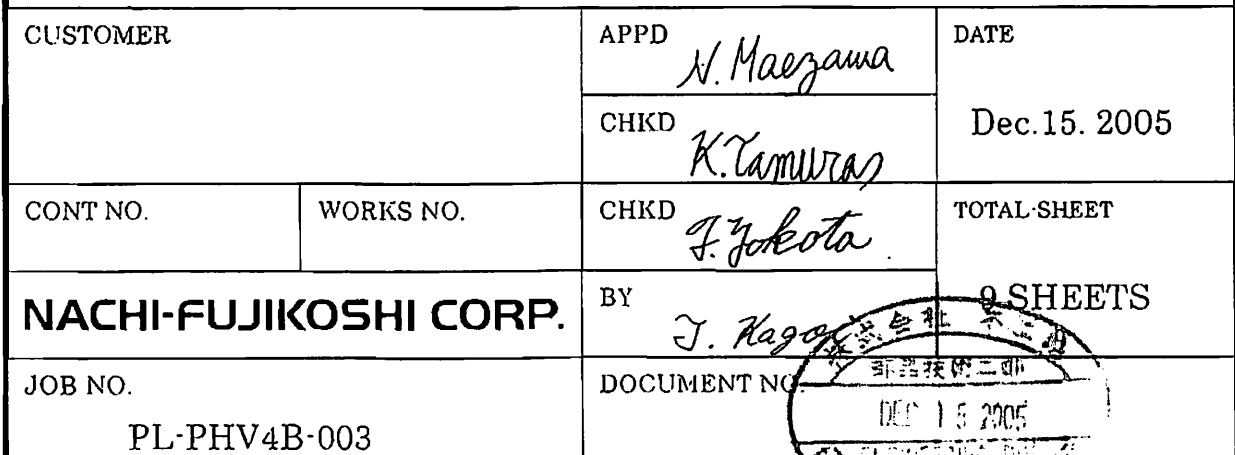 CUSTOMER
APPD
N. Maezawa
DATE
Dec.15. 2005
CHKD
K. Tamura
CONT NO.
WORKS NO.
CHKD
F. Yokota
TOTAL-SHEET
9 SHEETS
NACHI-FUJIKOSHI CORP.
BY
JOB NO.
PL-PHV4B-003
DOCUMENT NO.
株式会社 不二越
DEC 15 2005